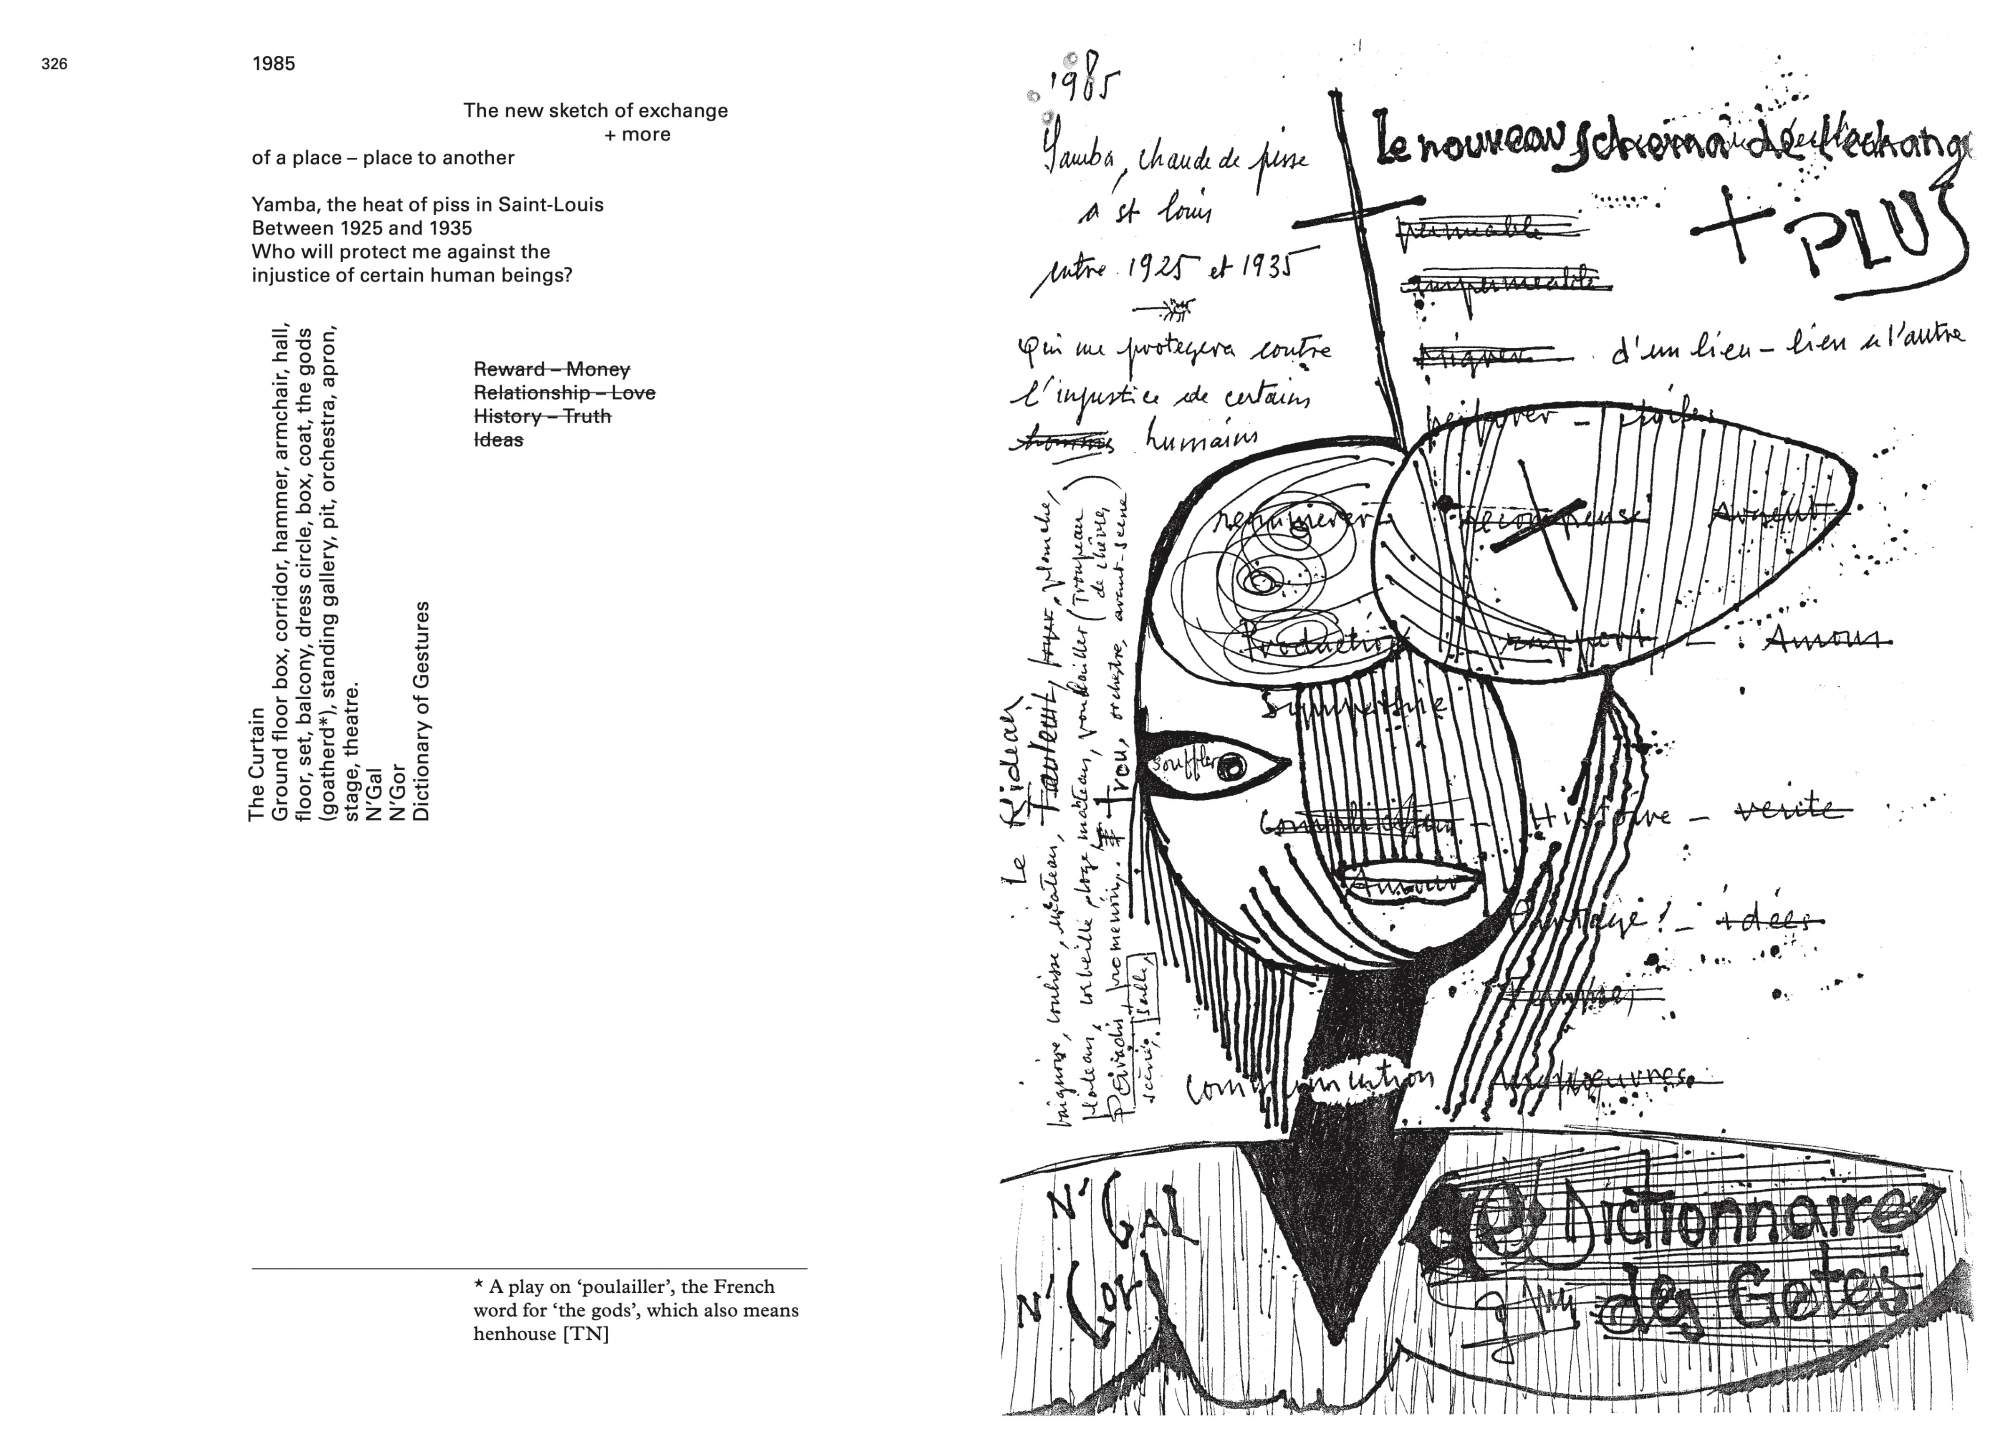 326
1985
The new sketch of exchange
+ more
of a place – place to another
Yamba, the heat of piss in Saint-Louis
Between 1925 and 1935
Who will protect me against the
injustice of certain human beings?
Reward – Money
Relationship – Love
History – Truth
Ideas
The Curtain
Ground floor box, corridor, hammer, armchair, hall,
floor, set, balcony, dress circle, box, coat, the gods
(goatherd*), standing gallery, pit, orchestra, apron,
stage, theatre.
N'Gal
N'Gor
Dictionary of Gestures
* A play on ‘poulailler’, the French
word for ‘the gods’, which also means
henhouse [TN]
1985
Yamba, chaude de pisse
a st louis
entre 1925 et 1935
Qui me protegera contre
l'injustice de certains
hommes humains
le nouveau Schema de l'echange
+ PLUS
permeable
impermeable
d'un lieu – lieu a l'autre
remunerer recompense Argent
Production rapport – Amour
souffler
Histoire – verite
Amour
Partage! – idées
communication
Le Rideau
baignoire, coulisse, marteau, Fauteuil, foyer, planche,
plateau, corbeille, loge, manteau, (Troupeau
de chèvre)
promenoir, trou, orchestre, avant-scene
scène, salle,
N'GAL
N'Gor
Dictionnaire
des Gestes